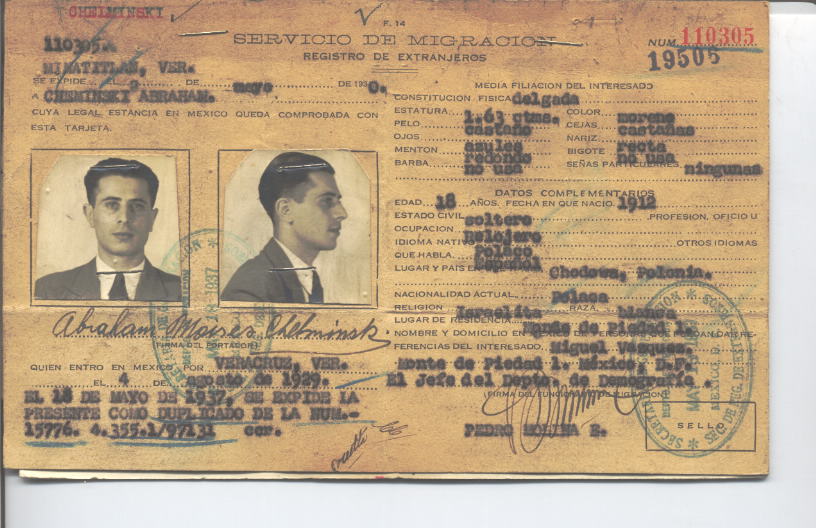 CHELMINSKI
F. 14
SERVICIO DE MIGRACION
REGISTRO DE EXTRANJEROS
NUM. 110305
19505
110305.
MINATITLAN, VER.
SE EXPIDE EL 2 DE mayo DE 1930.
A CHEMINSKI ABRAHAM.
CUYA LEGAL ESTANCIA EN MEXICO QUEDA COMPROBADA CON
ESTA TARJETA.
MEDIA FILIACION DEL INTERESADO
CONSTITUCION FISICA delgada
ESTATURA 1.63 ctms. COLOR moreno
PELO castaño CEJAS castañas
OJOS azules NARIZ recta
MENTON redondo BIGOTE no usa
BARBA no usa SEÑAS PARTICULARES ningunas
DATOS COMPLEMENTARIOS
EDAD 18 AÑOS. FECHA EN QUE NACIO 1912
ESTADO CIVIL soltero PROFESION, OFICIO U
OCUPACION Relojero
IDIOMA NATIVO Polaco OTROS IDIOMAS
QUE HABLA Español
LUGAR Y PAIS EN Chodowa, Polonia.
NACIONALIDAD ACTUAL Polaca
RELIGION Israelita RAZA blanca
LUGAR DE RESIDENCIA Monte de Piedad 1.
NOMBRE Y DOMICILIO DE PERSONAS QUE PUEDAN DAR RE-
FERENCIAS DEL INTERESADO. Miguel Vasques.
Monte de Piedad 1. México, D.F.
El Jefe del Depto. de Demografía.
(FIRMA DEL FUNCIONARIO DE MIGRACION)
PEDRO MOLINA E.
SELLO
Abraham Moises Chelminski
(FIRMA DEL PORTADOR)
QUIEN ENTRO EN MEXICO POR VERACRUZ, VER.
EL 4 DE agosto de 1929.
EL 18 DE MAYO DE 1937, SE EXPIDE LA
PRESENTE COMO DUPLICADO DE LA NUM.-
15776. 4.355.1/97131 cor.